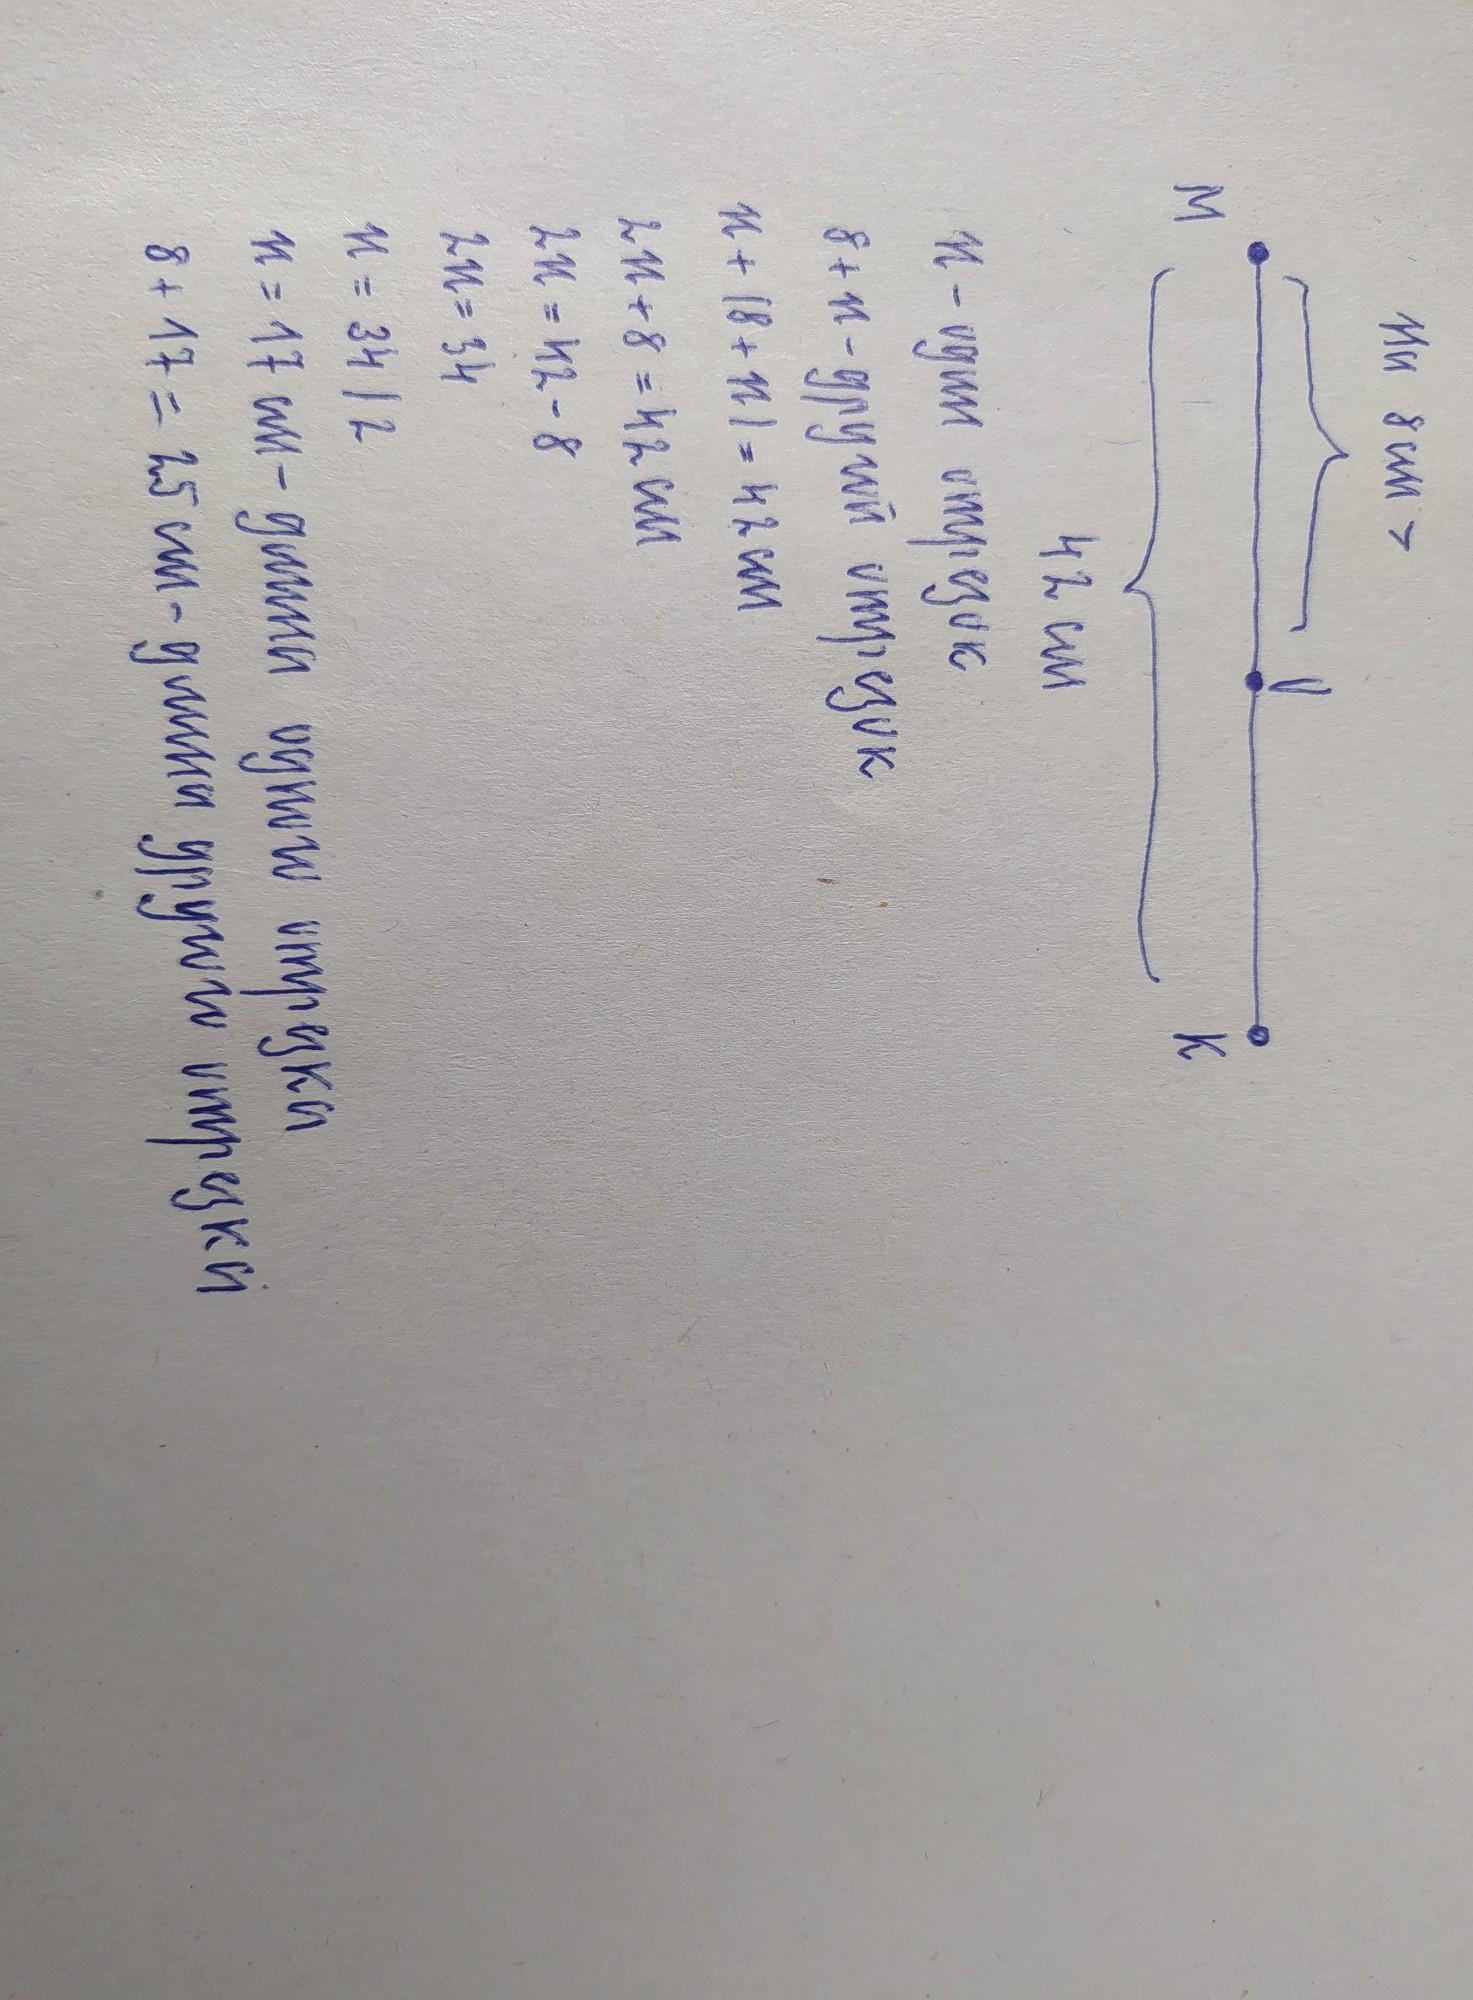 на 8 см >
M U K
42 см
х - один отрезок
8 + х - другой отрезок
х + (8 + х) = 42 см
2х + 8 = 42 см
2х = 42 - 8
2х = 34
х = 34 / 2
х = 17 см - длина одного отрезка
8 + 17 = 25 см - длина другого отрезка